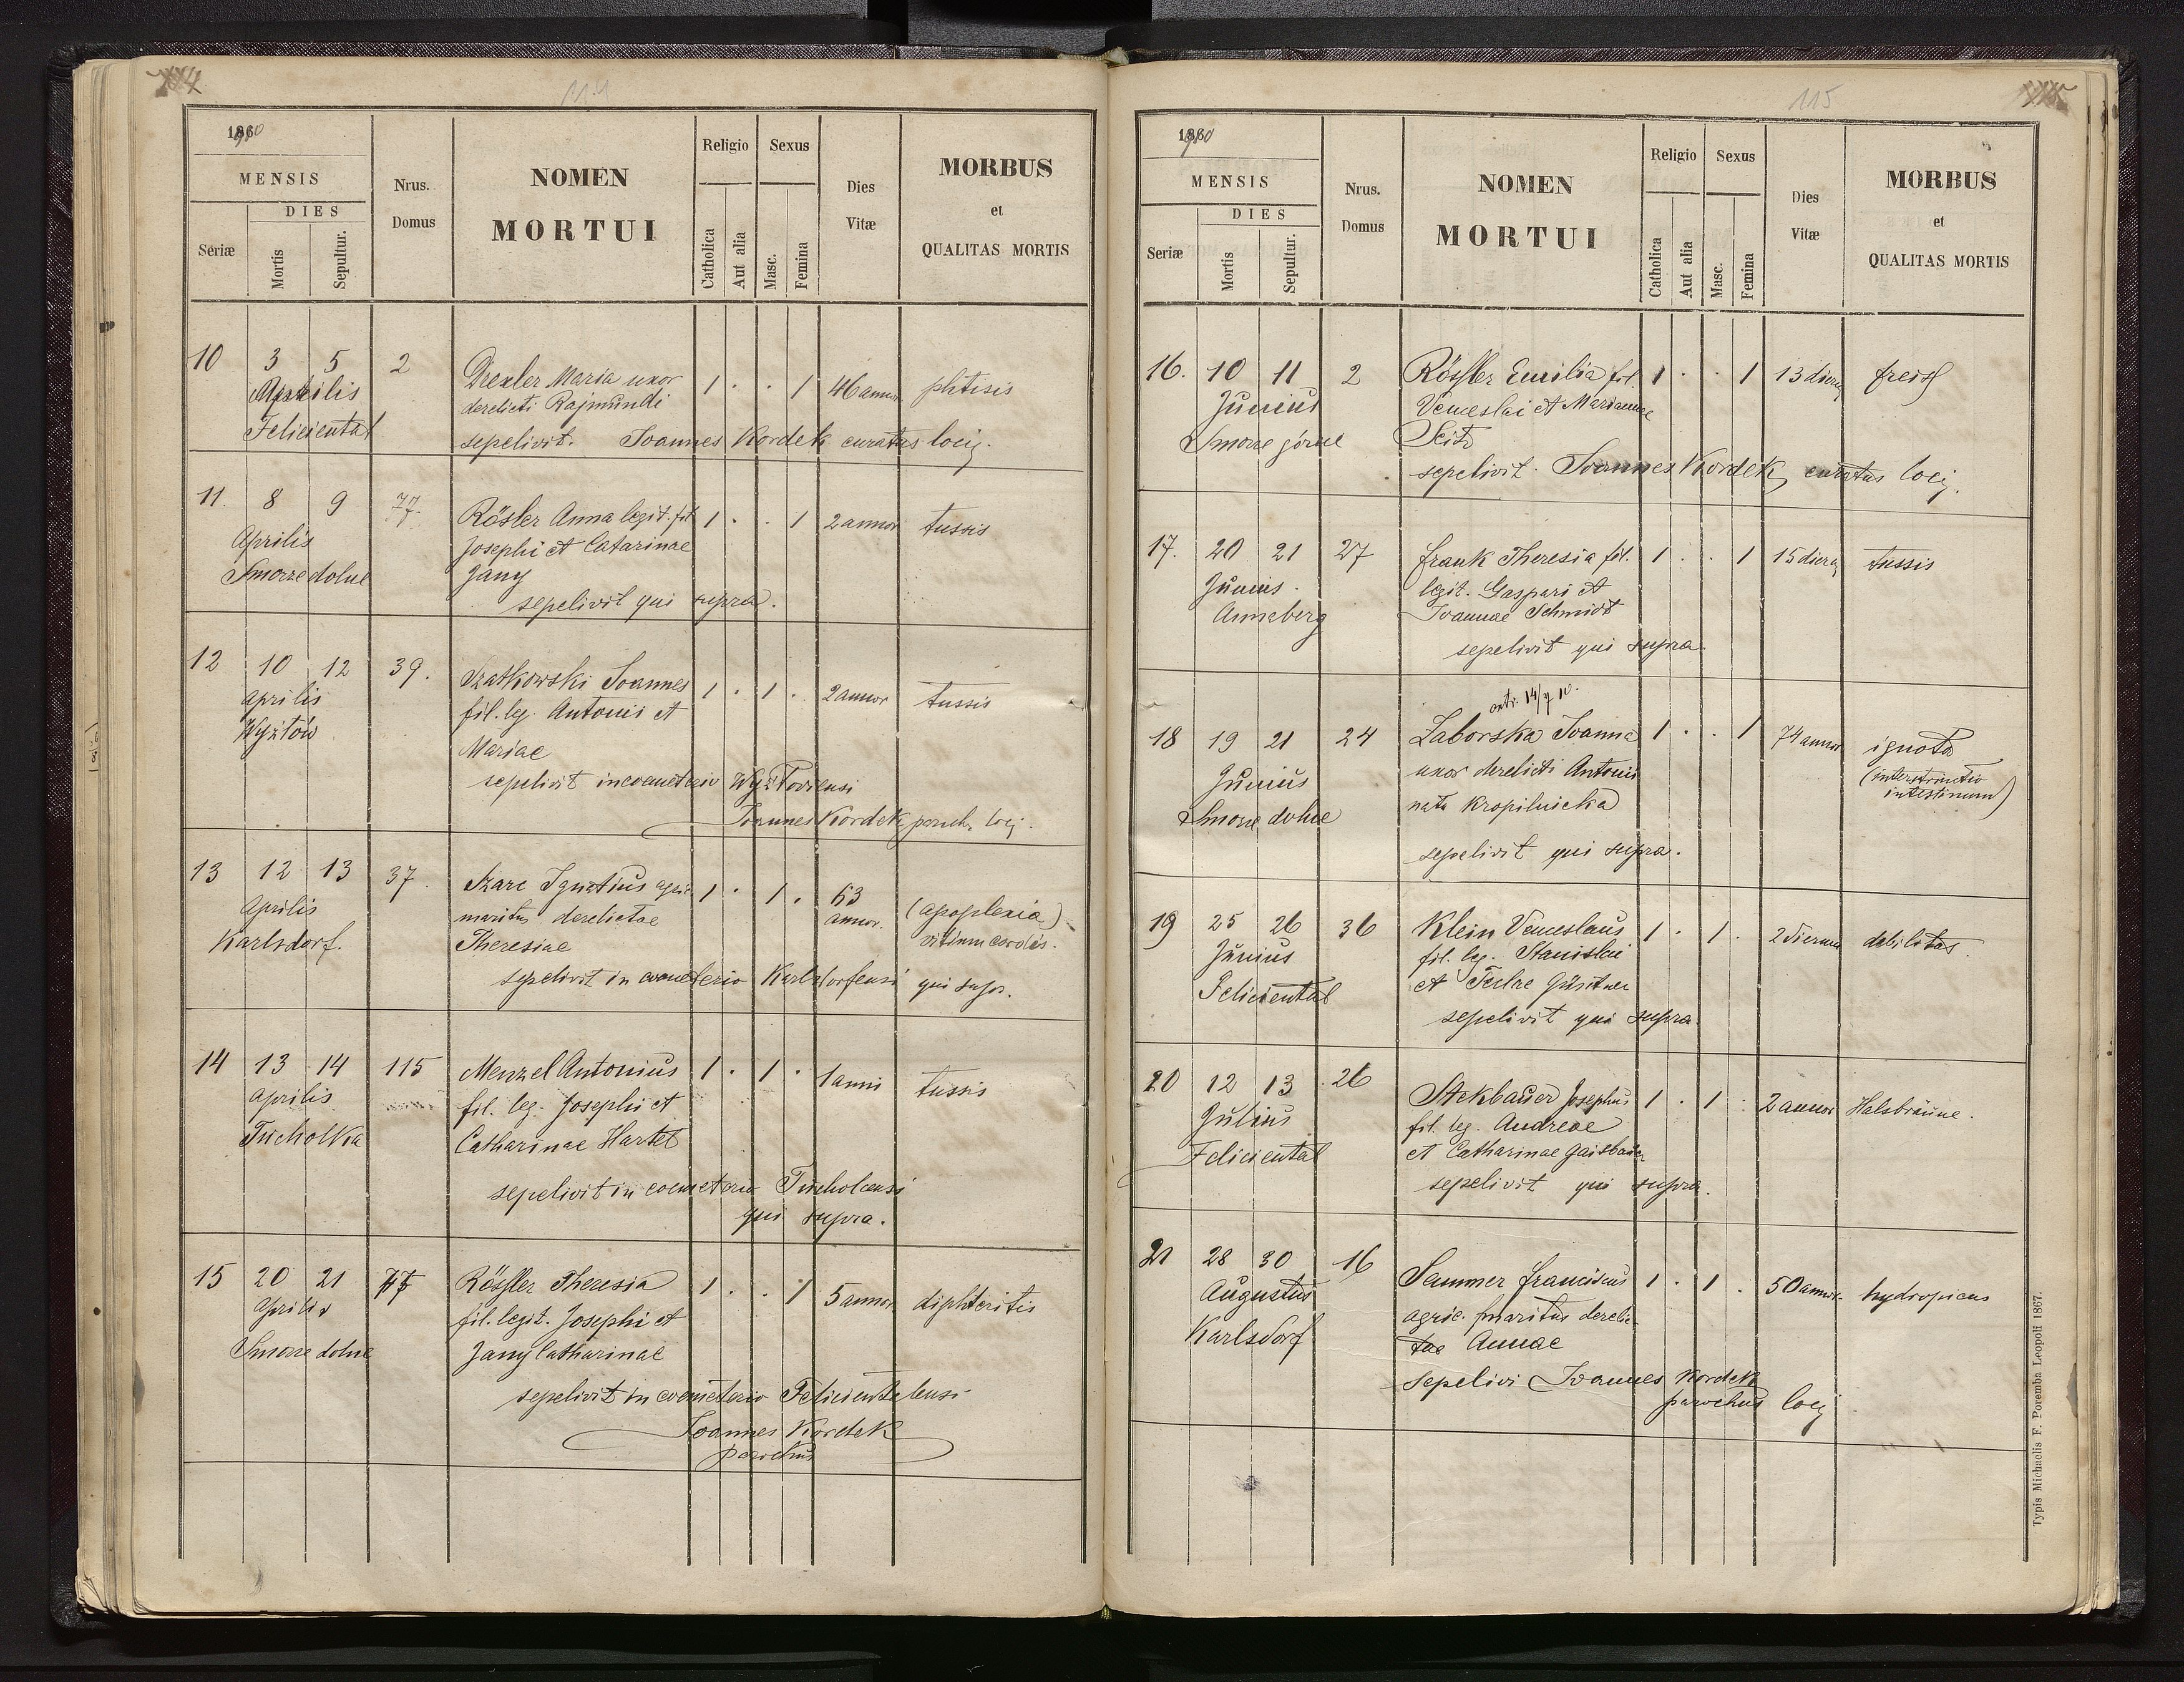 114
1890
MENSIS
DIES
Seriæ
Mortis
Sepultur.
Nrus.
Domus
NOMEN
MORTUI
Religio
Catholica
Aut alia
Sexus
Masc.
Femina
Dies
Vitæ
MORBUS
et
QUALITAS MORTIS
10 3 5 2 Drexler Maria uxor 1 . . 1 46 annor phtisis
Aprilis derelicti Rajmundi
Feliciental sepelivit. Joannes Kordek curatus locij.
11. 8 9 77. Rösler Anna legit. fil 1 . . 1 2 annor tussis
Aprilis Josephi et Catarinae
Smorze dolne Jany
sepelivit qui supra.
12 10 12 39. Szatkowski Joannes 1 . 1 . 2 annor tussis
Aprilis fil. leg. Antonii et
Wyżłów Mariae
sepelivit in coemeterio Wyżłoviensi
Joannes Kordek paroch. locij.
13 12 13 37. Szarc Ignatius agric 1 . 1 . 63 annor. (apoplexia)
Aprilis maritus derelictae vitium cordis.
Karlsdorf. Theresiae
sepelivit in coemeterio Karlsdorfensi qui supr.
14 13 14 115 Menzel Antonius 1 . 1 . 1 anni tussis
Aprilis fil. leg. Josephi et
Tucholka Catharinae Hartel
sepelivit in coemeterio Tucholcensi
qui supra.
15 20 21 77 Rössler Theresia 1 . . 1 5 annor diphteritis
Aprilis fil. legit. Josephi et
Smorze dolne Jany Catharinae
sepelivit in coemeterio Felicientalensi
Joannes Kordek
parochus
115
1890
MENSIS
DIES
Seriæ
Mortis
Sepultur.
Nrus.
Domus
NOMEN
MORTUI
Religio
Catholica
Aut alia
Sexus
Masc.
Femina
Dies
Vitæ
MORBUS
et
QUALITAS MORTIS
16. 10 11 2 Rössler Emilia fil. 1 . . 1 13 dierum freis
Junius Venceslai et Mariannae
Smorze górne Seitz
sepelivit. Joannes Kordek, curatus locij.
17. 20 21 27 Frank Theresia fil. 1 . . 1 15 dierum tussis
Junius. legit. Gaspari et
Anneberg Joannae Schmidt
sepelivit qui supra.
18 19 21 24 Zaborska Joanna 1 . . 1 74 annor ignota
Junius uxor derelicti Antonii
Smorze dolne nata Kropilnicka
sepelivit qui supra.
19 25 26 36 Klein Venceslaus 1 . 1 . 2 dierum debilitas.
Junius fil. leg. Stanislai
Feliciental
sepelivit qui supra.
20 12 13 26 Stekbauer Josephus 1 . 1 . 2 annor Halsbräune.
Julius fil. leg. Andreae
Feliciental et Catharinae Gaisbauer
sepelivit qui supra.
21 28 30 16 Sammer Franciscus 1 . 1 . 50 annor. hydropicus
Augustus agric. maritus derelic-
Karlsdorf tae Annae
sepelivi Joannes Kordek
parochus locij
Typis Michaelis F. Poremba Leopoli 1867.